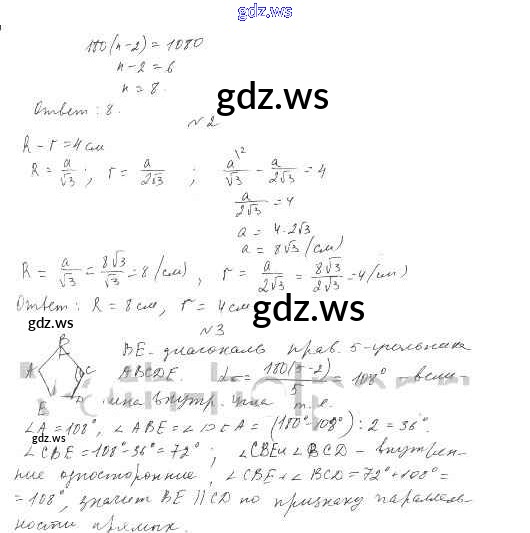 gdz.ws
180(n-2) = 1080
n-2 = 6
n = 8.
Ответ: 8.
gdz.ws
№2
R - r = 4 см
R = a/√3; r = a/2√3; a\2/√3 - a/2√3 = 4
a/2√3 = 4
a = 4·2√3
a = 8√3 (см)
R = a/√3 = 8√3/√3 = 8 (см), r = a/2√3 = 8√3/2√3 = 4 (см)
Ответ: R = 8 см, r = 4 см
gdz.ws
gdz.ws
№3
B
BE - диагональ прав. 5-угольника
A C ABCDE. = 180(5-2)/5 = 108° - вели-
E D чина внутр. угла т.е.
∠A = 108°, ∠ABE = = (180°-108°):2 = 36°
∠CBE = 108°-36° = 72°; ∠CBE и ∠BCD - внутрен-
gdz.ws
ние односторонние, ∠CBE + ∠BCD = 72° + 108° =
= 108°, значит BE || CD по признаку параллель-
ности прямых.